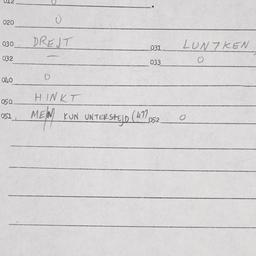 012 0
020 0
030 DREJT 031 LUNTKEN
032 — 033 0
040 0
050 HINKT
051 MEN KUN UNTERSTEJD (47) 052 0